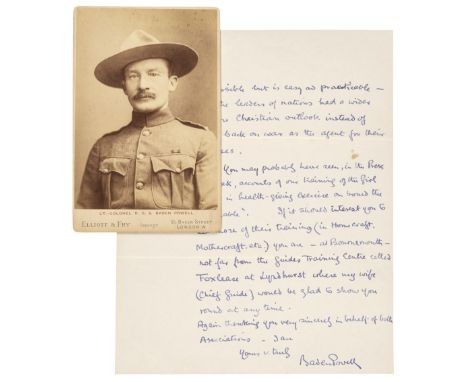 LT. COLONEL R. S. S. BADEN POWELL
ELLIOTT & FRY
Copyright
55, BAKER STREET
LONDON. W.
but is easy and practicable —
the leaders of nations had a wider
Christian outlook instead of
back on war as the agent for their
You may probably have seen, in the Press
accounts of our training of the Girl
in health-giving exercise on round the
If it should interest you to
more of their training (in Homecraft,
Mothercraft, etc) you are — at Bournemouth —
not far from the Guides Training Centre called
Foxlease at Lyndhurst where my wife
(Chief Guide) would be glad to show you
round at any time.
Again thanking you very sincerely in behalf of both
Associations — I am
Yours v. truly
Baden Powell